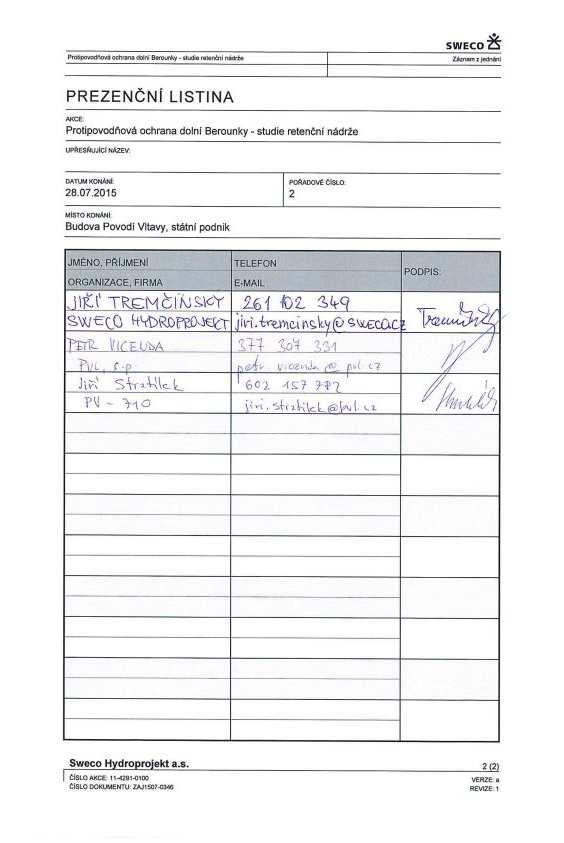 SWECO
Protipovodňová ochrana dolní Berounky - studie retenční nádrže
Záznam z jednání
PREZENČNÍ LISTINA
AKCE:
Protipovodňová ochrana dolní Berounky - studie retenční nádrže
UPŘESŇUJÍCÍ NÁZEV:
DATUM KONÁNÍ:
28.07.2015
POŘADOVÉ ČÍSLO:
2
MÍSTO KONÁNÍ:
Budova Povodí Vltavy, státní podnik
JMÉNO, PŘÍJMENÍ TELEFON
PODPIS:
ORGANIZACE, FIRMA E-MAIL
JIŘÍ TREMČINSKÝ 261 102 349
SWECO HYDROPROJEKT jiri.tremcinsky@sweco.cz
PETR VICENDA 377 307 331
PVL, s.p. petr.vicenda@pvl.cz
Jiří Stratílek 602 157 772
PV - 710 jiri.stratilek@pvl.cz
Sweco Hydroprojekt a.s.
2 (2)
ČÍSLO AKCE: 11-4291-0100
VERZE: a
ČÍSLO DOKUMENTU: ZAJ1507-0346
REVIZE: 1